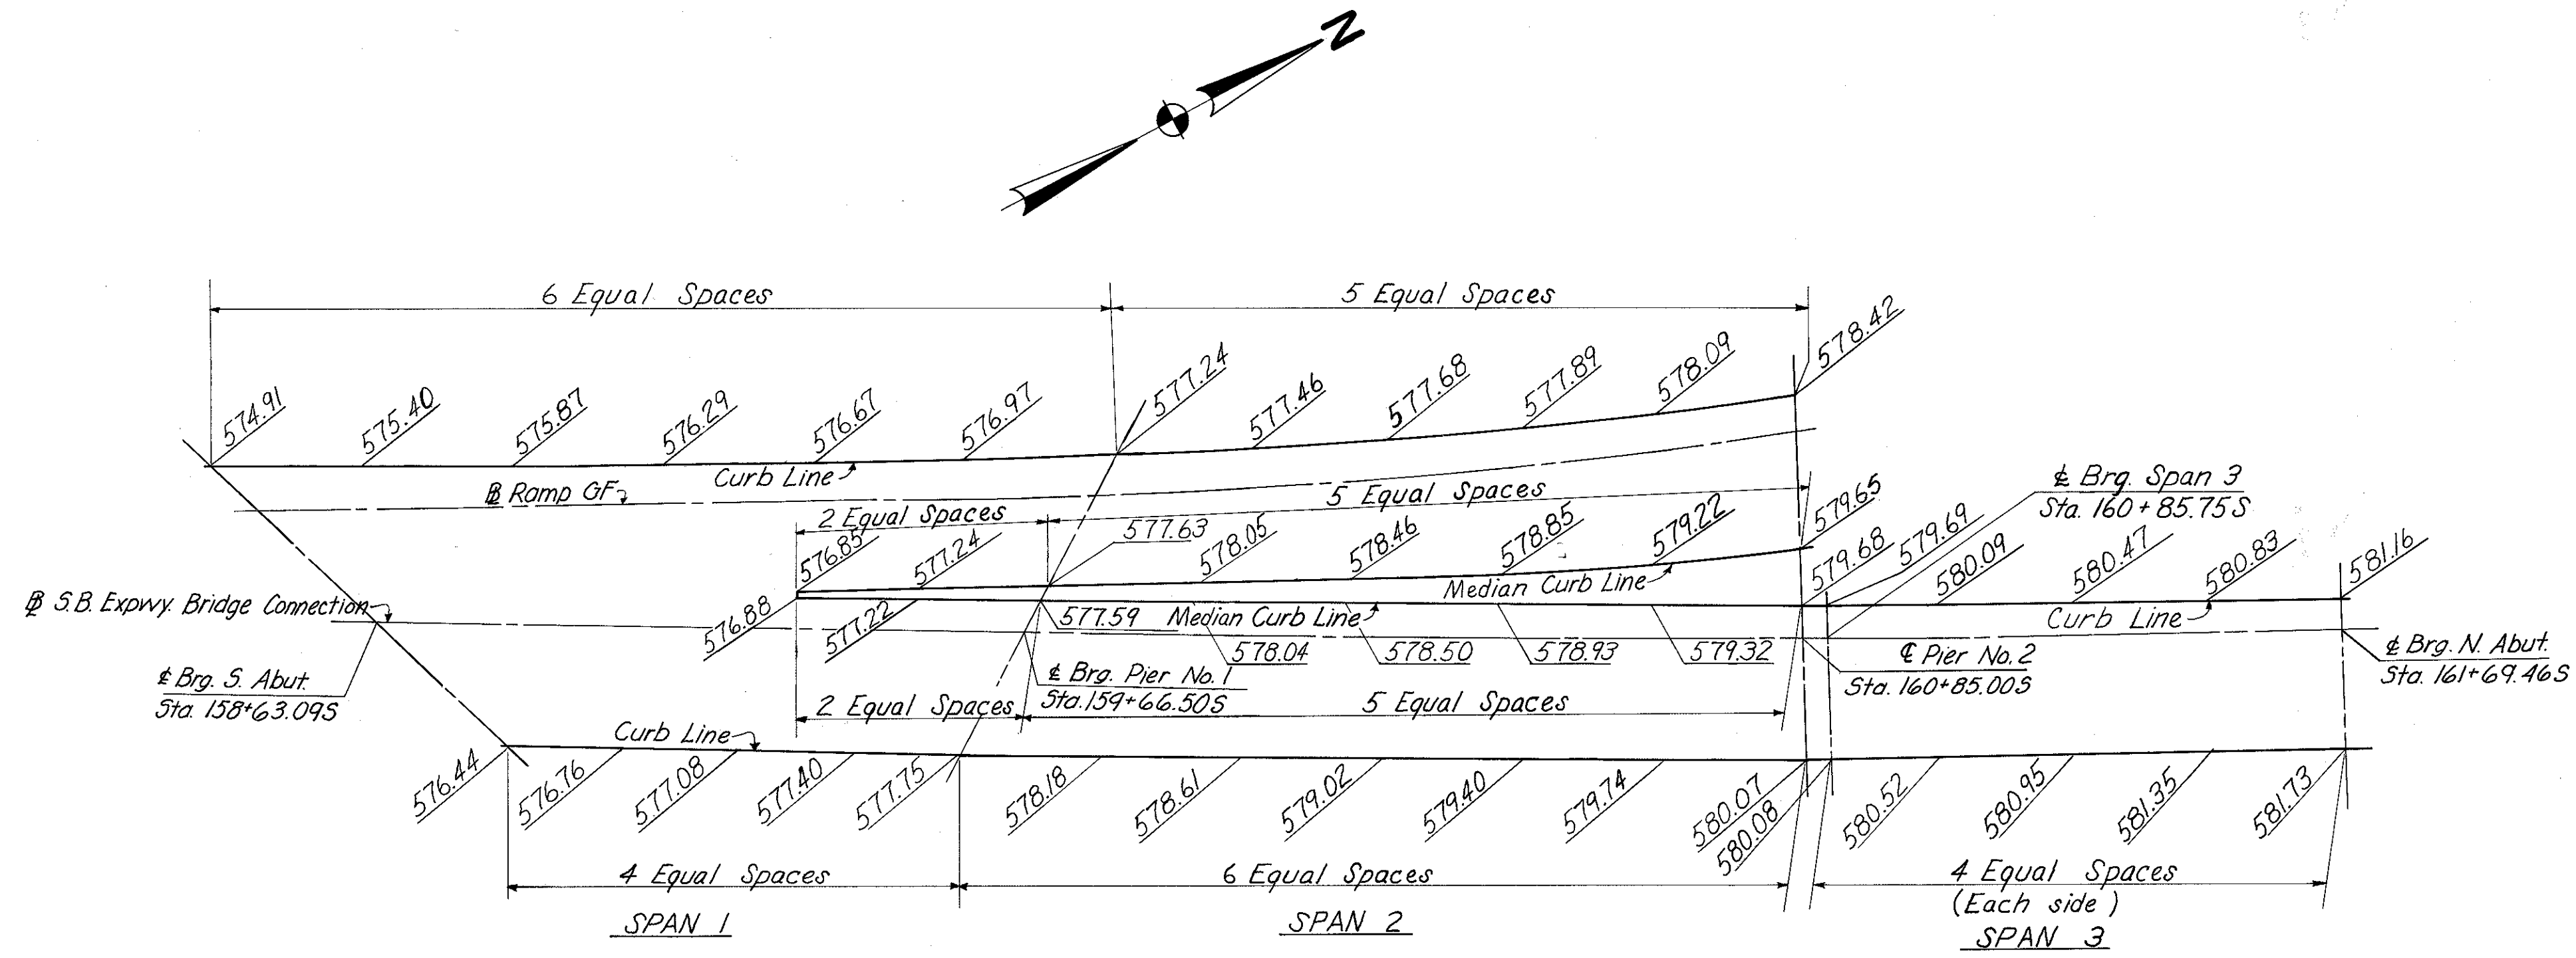 N
6 Equal Spaces
5 Equal Spaces
574.91
575.40
575.87
576.29
576.67
576.97
577.24
577.46
577.68
577.89
578.09
578.42
Curb Line
℄ Brg. Span 3
Sta. 160+85.75S
B Ramp GF
5 Equal Spaces
2 Equal Spaces
576.85
577.24
577.63
578.05
578.46
578.85
579.22
579.65
579.68
579.69
580.09
580.47
580.83
581.16
Median Curb Line
B S.B. Expwy. Bridge Connection
576.88
577.22
577.59
Median Curb Line
578.04
578.50
578.93
579.32
Curb Line
℄ Brg. S. Abut.
Sta. 158+63.09S
℄ Brg. Pier No. 1
Sta. 159+66.50S
℄ Pier No. 2
Sta. 160+85.00S
℄ Brg. N. Abut.
Sta. 161+69.46S
2 Equal Spaces
5 Equal Spaces
Curb Line
576.44
576.76
577.08
577.40
577.75
578.18
578.61
579.02
579.40
579.74
580.07
580.08
580.52
580.95
581.35
581.73
4 Equal Spaces
6 Equal Spaces
4 Equal Spaces
(Each side)
SPAN 1
SPAN 2
SPAN 3